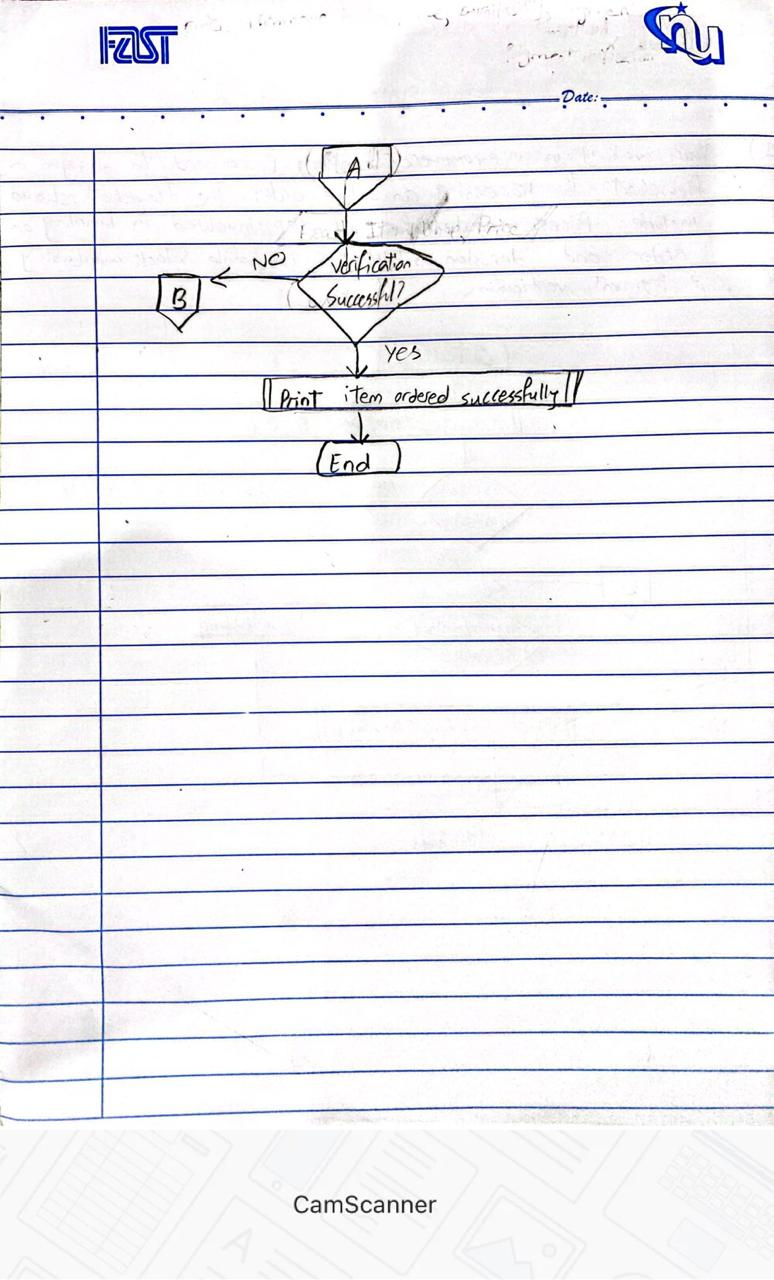 FAST
nu
Date:
A
Verification
Successful?
NO
B
Yes
Print item ordered successfully
End
CamScanner